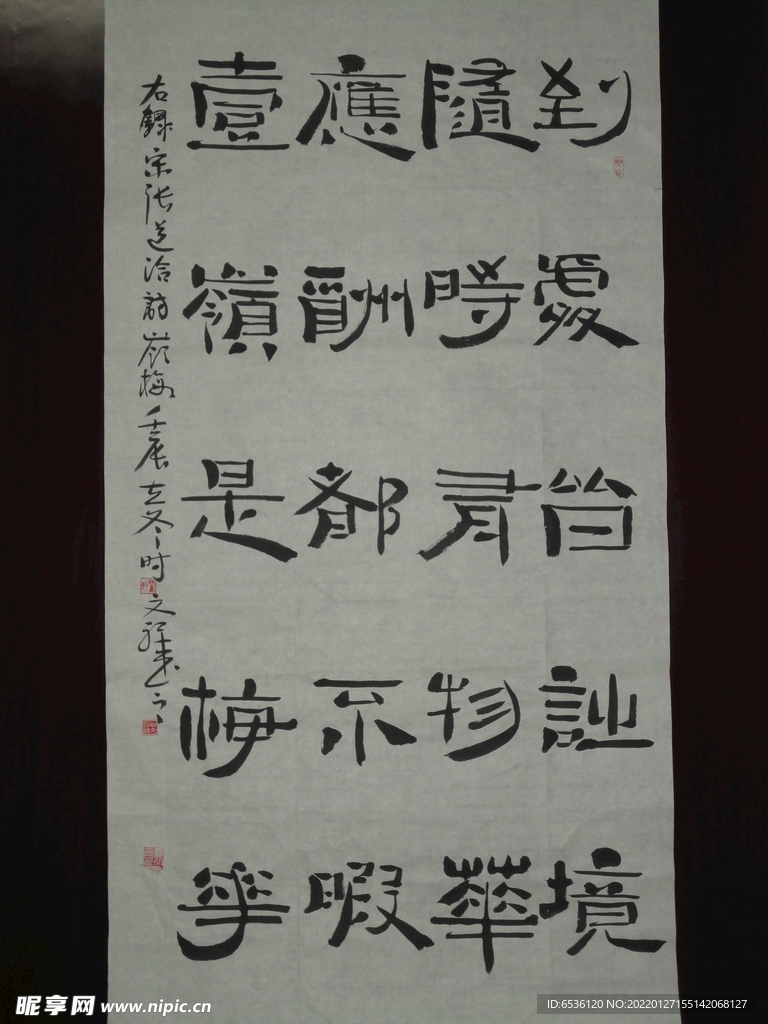 到處皆詩境
隨時有物華
應酬都不暇
壹嶺是梅花
右錄宋張道洽詩嶺梅 壬辰立冬时
昵享网 www.nipic.cn
ID:6536120 NO:20220127155142068127